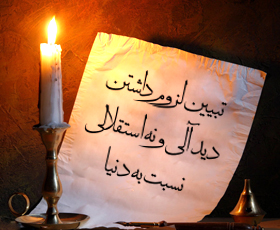 تبیین لزوم داشتن
دید آلی و نه استقلالی
نسبت به دنیا